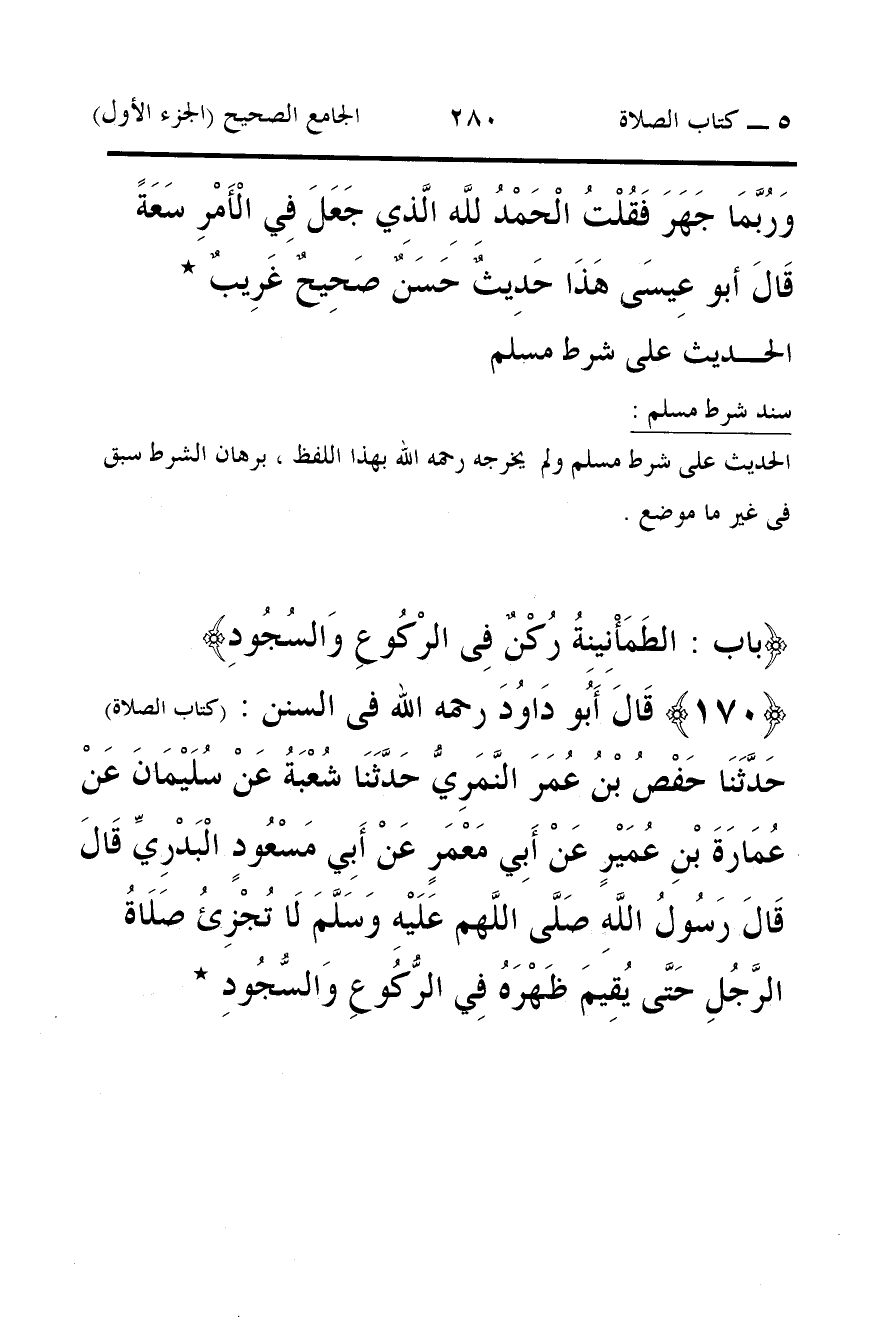 ٥ ــ كتاب الصلاة ٢٨٠ الجامع الصحيح (الجزء الأول)
وَرُبَّمَا جَهَرَ فَقُلْتُ الْحَمْدُ لِلَّهِ الَّذِي جَعَلَ فِي الْأَمْرِ سَعَةً
قَالَ أبو عِيسَى هَذَا حَدِيثٌ حَسَنٌ صَحِيحٌ غَرِيبٌ *
الحـــديث على شرط مسلم
سند شرط مسلم :
الحديث على شرط مسلم ولم يخرجه رحمه الله بهذا اللفظ ، برهان الشرط سبق
فى غير ما موضع .
﴿باب : الطَمَأْنِينِةُ رُكْنٌ فِى الرْكُوعِ وَالسُجُودِ﴾
﴿١٧٠﴾ قَالَ أَبُو دَاوُدَ رحمه الله فى السنن : (كتاب الصلاة)
حَدَّثَنَا حَفْصُ بْنُ عُمَرَ النَّمَرِيُّ حَدَّثَنَا شُعْبَةُ عَنْ سُلَيْمَانَ عَنْ
عُمَارَةَ بْنِ عُمَيْرٍ عَنْ أَبِي مَعْمَرٍ عَنْ أَبِي مَسْعُودٍ الْبَدْرِيِّ قَالَ
قَالَ رَسُولُ اللَّهِ صَلَّى اللَّهم عَلَيْهِ وَسَلَّمَ لَا تُجْزِئُ صَلَاةُ
الرَّجُلِ حَتَّى يُقِيمَ ظَهْرَهُ فِي الرُّكُوعِ وَالسُّجُودِ *